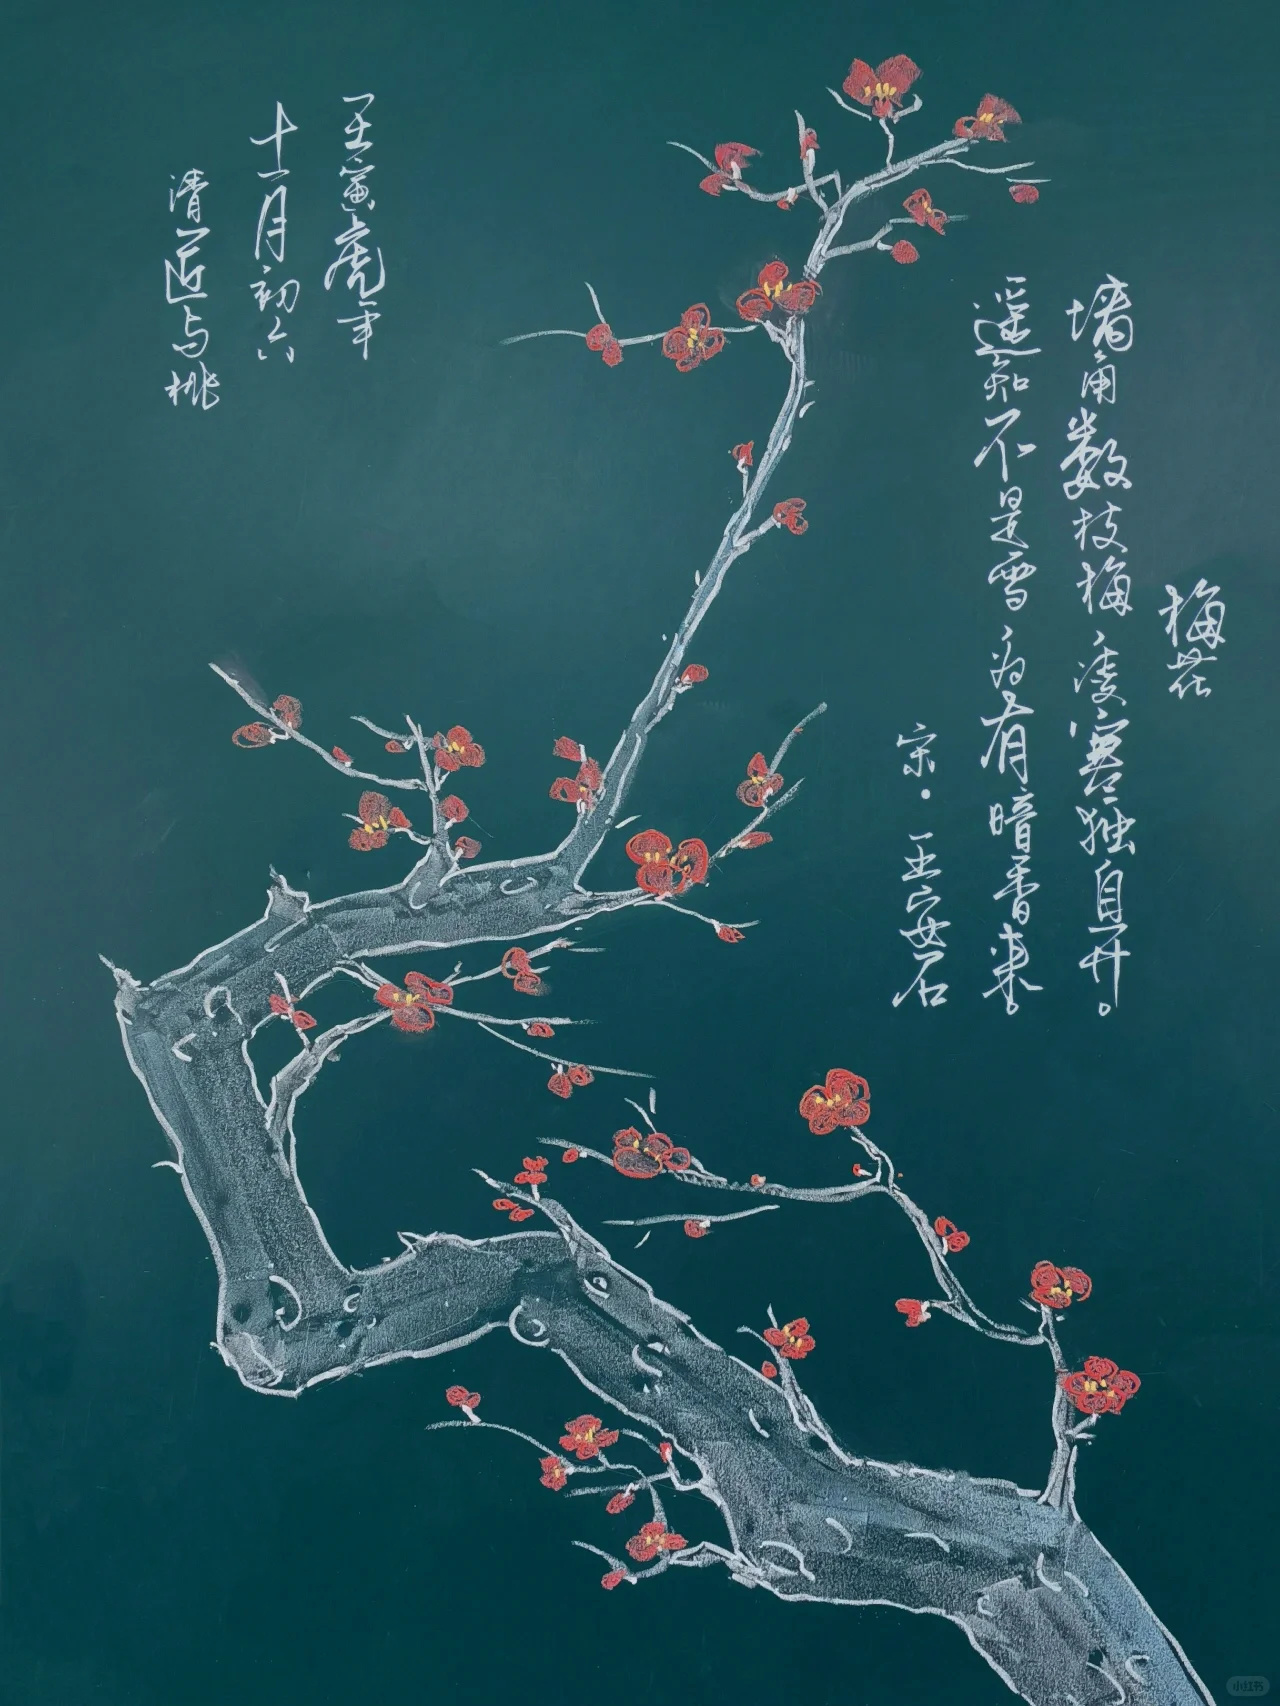 梅花
墙角数枝梅，凌寒独自开。
遥知不是雪，为有暗香来。
宋·王安石
壬寅虎年
十一月初六
清匠与桃
小红书